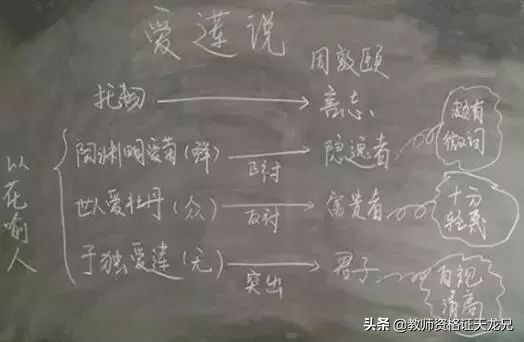 爱莲说
周敦颐
托物 言志
以花喻人
陶渊明爱菊(鲜) 正衬 隐逸者 颇有
微词
世人爱牡丹(众) 反衬 富贵者 十分
轻蔑
予独爱莲(无) 突出 君子 自视
清高
头条 @教师资格证天龙兄